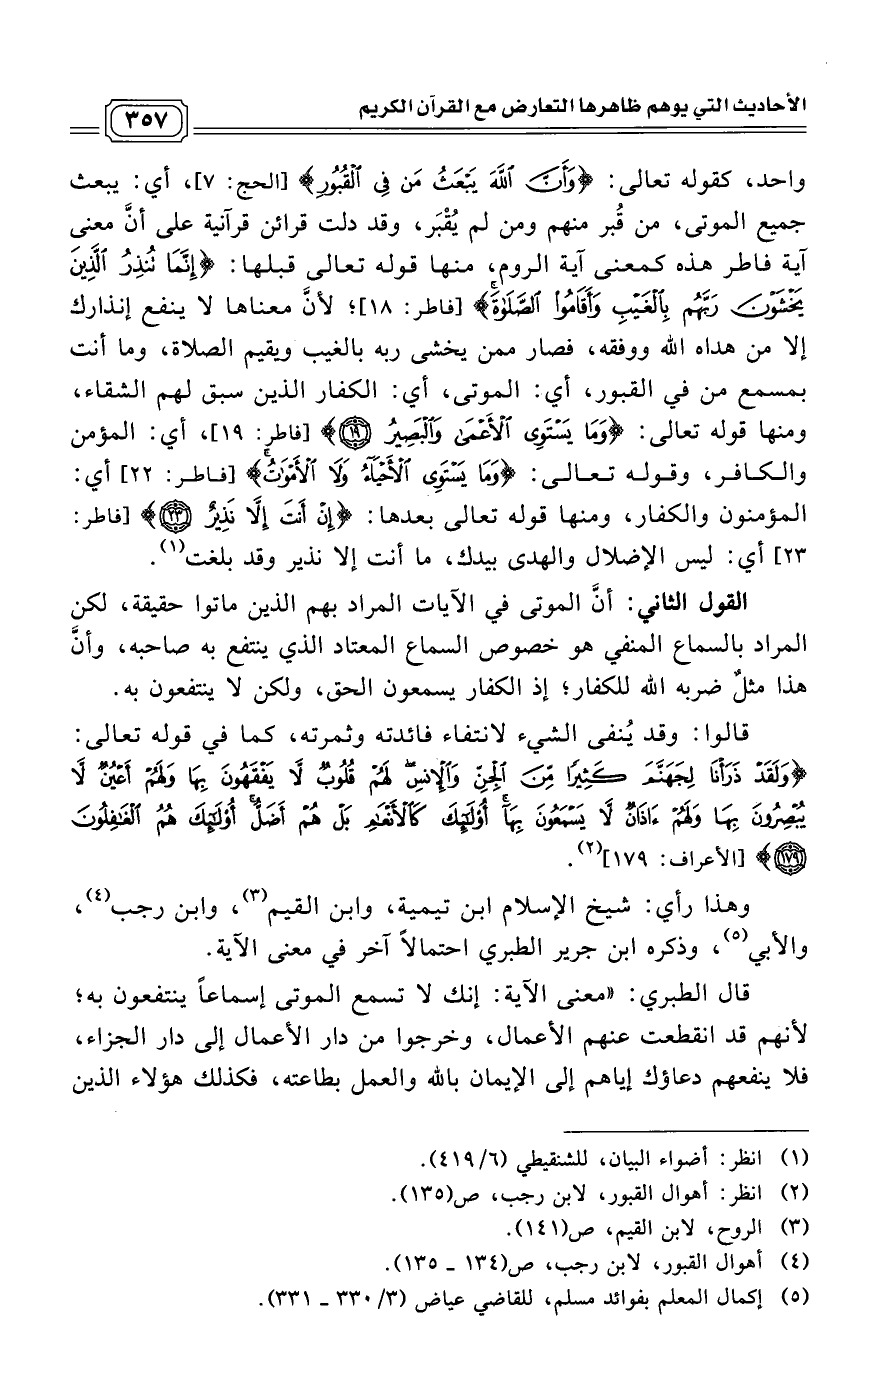 الأحاديث التي يوهم ظاهرها التعارض مع القرآن الكريم
٣٥٧
واحد، كقوله تعالى: ﴿وَأَنَّ ٱللَّهَ يَبْعَثُ مَن فِي ٱلْقُبُورِ﴾ [الحج: ٧]، أي: يبعث
جميع الموتى، من قُبر منهم ومن لم يُقْبَر، وقد دلت قرائن قرآنية على أنَّ معنى
آية فاطر هذه كمعنى آية الروم، منها قوله تعالى قبلها: ﴿إِنَّمَا نُنذِرُ ٱلَّذِينَ
يَخْشَوْنَ رَبَّهُم بِٱلْغَيْبِ وَأَقَامُوا۟ ٱلصَّلَوٰةَ﴾ [فاطر: ١٨]؛ لأنَّ معناها لا ينفع إنذارك
إلا من هداه الله ووفقه، فصار ممن يخشى ربه بالغيب ويقيم الصلاة، وما أنت
بمسمع من في القبور، أي: الموتى، أي: الكفار الذين سبق لهم الشقاء،
ومنها قوله تعالى: ﴿وَمَا يَسْتَوِى ٱلْأَعْمَىٰ وَٱلْبَصِيرُ ١٩﴾ [فاطر: ١٩]، أي: المؤمن
والكافر، وقوله تعالى: ﴿وَمَا يَسْتَوِى ٱلْأَحْيَآءُ وَلَا ٱلْأَمْوَٰتُ﴾ [فاطر: ٢٢] أي:
المؤمنون والكفار، ومنها قوله تعالى بعدها: ﴿إِنْ أَنتَ إِلَّا نَذِيرٌ ٢٣﴾ [فاطر:
٢٣] أي: ليس الإضلال والهدى بيدك، ما أنت إلا نذير وقد بلغت(١).
القول الثاني: أنَّ الموتى في الآيات المراد بهم الذين ماتوا حقيقة، لكن
المراد بالسماع المنفي هو خصوص السماع المعتاد الذي ينتفع به صاحبه، وأنَّ
هذا مثلٌ ضربه الله للكفار؛ إذ الكفار يسمعون الحق، ولكن لا ينتفعون به.
قالوا: وقد يُنفى الشيء لانتفاء فائدته وثمرته، كما في قوله تعالى:
﴿وَلَقَدْ ذَرَأْنَا لِجَهَنَّمَ كَثِيرًا مِّنَ ٱلْجِنِّ وَٱلْإِنسِ ۖ لَهُمْ قُلُوبٌ لَّا يَفْقَهُونَ بِهَا وَلَهُمْ أَعْيُنٌ لَّا
يُبْصِرُونَ بِهَا وَلَهُمْ ءَاذَانٌ لَّا يَسْمَعُونَ بِهَآ ۚ أُو۟لَٰٓئِكَ كَٱلْأَنْعَٰمِ بَلْ هُمْ أَضَلُّ ۚ أُو۟لَٰٓئِكَ هُمُ ٱلْغَٰفِلُونَ
١٧٩﴾ [الأعراف: ١٧٩](٢).
وهذا رأي: شيخ الإسلام ابن تيمية، وابن القيم(٣)، وابن رجب(٤)،
والأبي(٥)، وذكره ابن جرير الطبري احتمالاً آخر في معنى الآية.
قال الطبري: «معنى الآية: إنك لا تسمع الموتى إسماعاً ينتفعون به؛
لأنهم قد انقطعت عنهم الأعمال، وخرجوا من دار الأعمال إلى دار الجزاء،
فلا ينفعهم دعاؤك إياهم إلى الإيمان بالله والعمل بطاعته، فكذلك هؤلاء الذين
(١) انظر: أضواء البيان، للشنقيطي (٤١٩/٦).
(٢) انظر: أهوال القبور، لابن رجب، ص(١٣٥).
(٣) الروح، لابن القيم، ص(١٤١).
(٤) أهوال القبور، لابن رجب، ص(١٣٤ ـ ١٣٥).
(٥) إكمال المعلم بفوائد مسلم، للقاضي عياض (٣٣٠/٣ ـ ٣٣١).